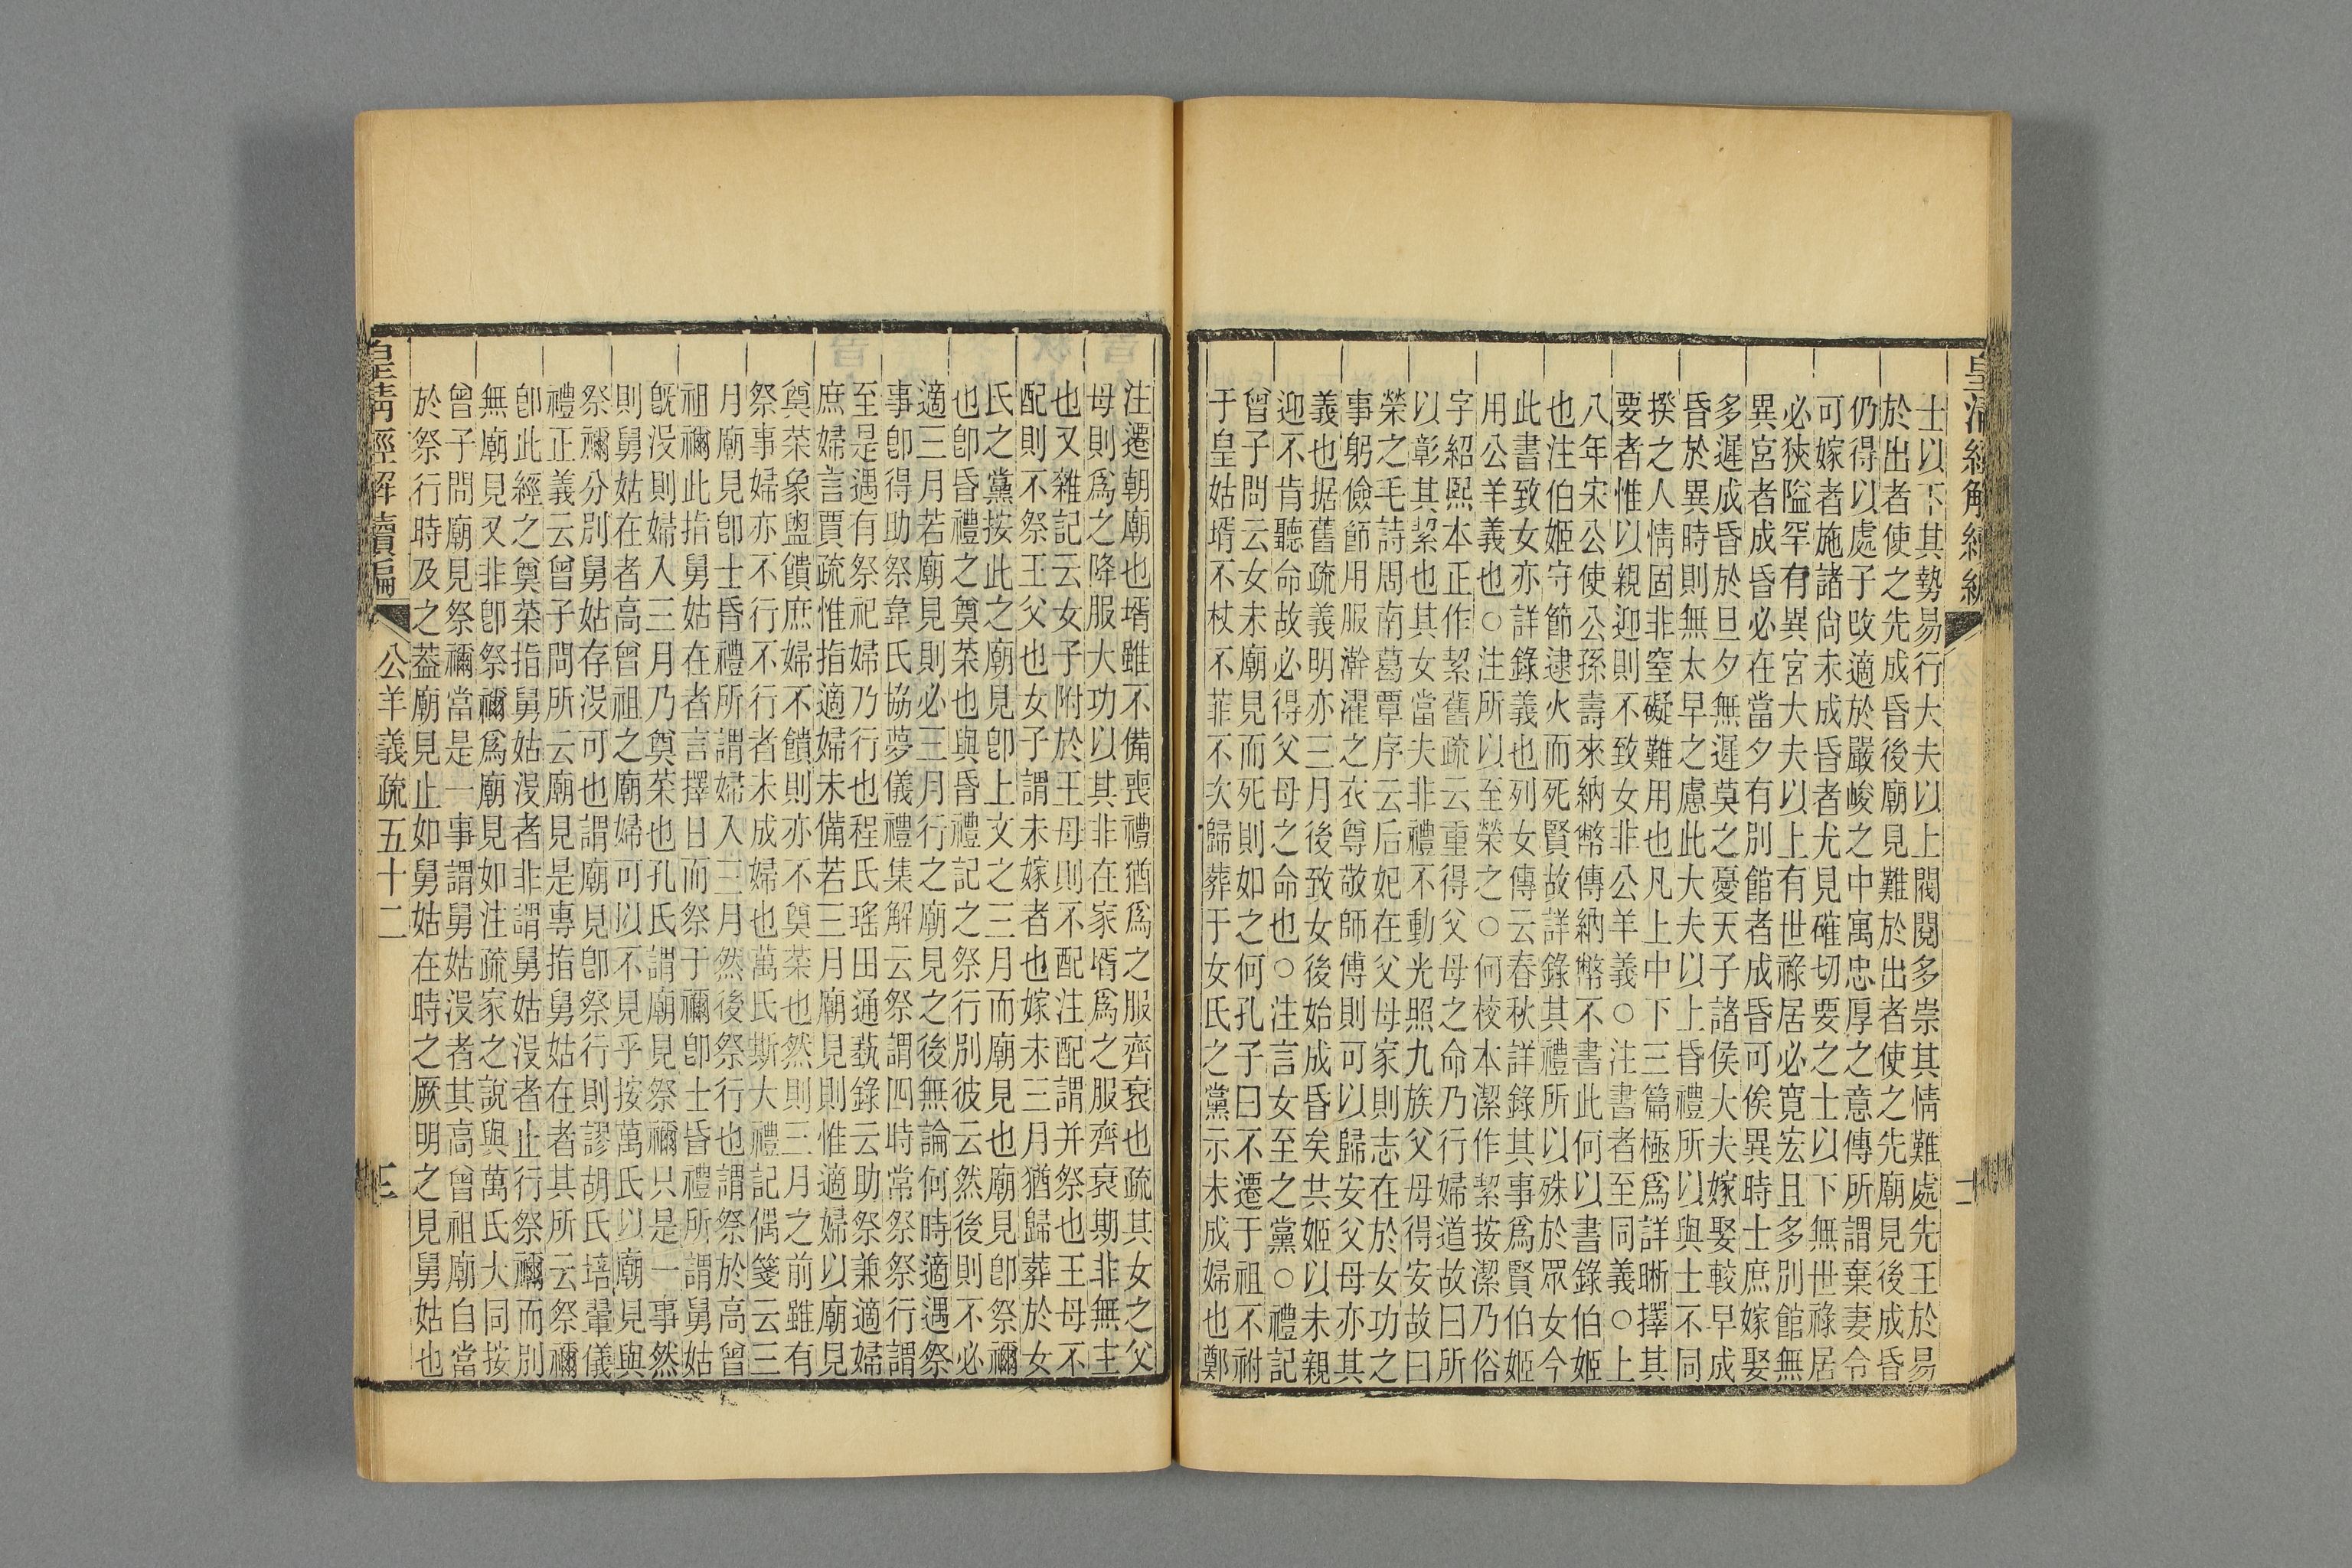 皇清經解續編
士以下其勢易行大夫以上閥閱多崇其情難處先王於易
於出者使之先成昏後廟見難於出者使之先廟見後成昏
仍得以處子改適於嚴峻之中寓忠厚之意傳所謂棄妻令
可嫁者施諸尙未成昏者尤見確切要之士以下無世祿居
必狹隘罕有異宮大夫以上有世祿居必寬宏且多別館無
異宮者成昏必在當夕有別館者成昏可俟異時士庶嫁娶
多遲成昏於旦夕無遲莫之憂天子諸侯大夫嫁娶較早成
昏於異時則無太早之慮此大夫以上昏禮所以與士不同
揆之人情固非窒礙難用也凡上中下三篇極爲詳晰擇其
要者惟以親迎則不致女非公羊義○注書者至同義○上
八年宋公使公孫壽來納幣傳納幣不書此何以書錄伯姬
也注伯姬守節逮火而死賢故詳錄其禮所以殊於眾女今
此書致女亦詳錄義也列女傳云春秋詳錄其事爲賢伯姬
用公羊義也○注所以至榮之○何校本潔作絜按潔乃俗
字紹熙本正作絜舊疏云重得父母之命乃行婦道故曰所
以彰其絜也其女當夫非禮不動光照九族父母得安故曰
榮之毛詩周南葛覃序云后妃在父母家則志在於女功之
事躬儉節用服澣濯之衣尊敬師傅則可以歸安父母亦其
義也据舊疏義明亦三月後致女後始成昏矣共姬以未親
迎不肯聽命故必得父母之命也○注言女至之黨○禮記
曾子問云女未廟見而死則如之何孔子曰不遷于祖不祔
于皇姑壻不杖不菲不次歸葬于女氏之黨示未成婦也鄭
注遷朝廟也壻雖不備喪禮猶爲之服齊衰也疏其女之父
母則爲之降服大功以其非在家壻爲之服齊衰期非無主
也又雜記云女子附於王母則不配注配謂并祭也王母不
配則不祭王父也女子謂未嫁者也嫁未三月猶歸葬於女
氏之黨按此之廟見卽上文之三月而廟見也廟見卽祭禰
也卽昏禮之奠菜也與昏禮記之祭行別彼云然後則不必
適三月若廟見則必三月行之廟見之後無論何時適遇祭
事卽得助祭韋氏協夢儀禮集解云祭謂四時常祭祭行謂
至是遇有祭祀婦乃行也程氏瑤田通蓺錄云助祭兼適婦
庶婦言賈疏惟指適婦未備若三月廟見則惟適婦以廟見
奠菜象盥饋庶婦不饋則亦不奠菜也然則三月之前雖有
祭事婦亦不行不行者未成婦也萬氏斯大禮記偶箋云三
月廟見卽士昏禮所謂婦入三月然後祭行也謂祭於高曾
祖禰此指舅姑在者言擇日而祭于禰卽士昏禮所謂舅姑
旣沒則婦入三月乃奠菜也孔氏謂廟見祭禰只是一事然
則舅姑在者高曾祖之廟婦可以不見乎按萬氏以廟見與
祭禰分別舅姑存沒可也謂廟見卽祭行則謬胡氏培翬儀
禮正義云曾子問所云廟見是專指舅姑在者其所云祭禰
卽此經之奠菜指舅姑沒者非謂舅姑沒者止行祭禰而別
無廟見又非卽祭禰爲廟見如注疏家之說與萬氏大同按
曾子問廟見祭禰當是一事謂舅姑沒者其高曾祖廟自當
於祭行時及之葢廟見止如舅姑在時之厥明之見舅姑也
皇清經解續編 公羊義疏五十二